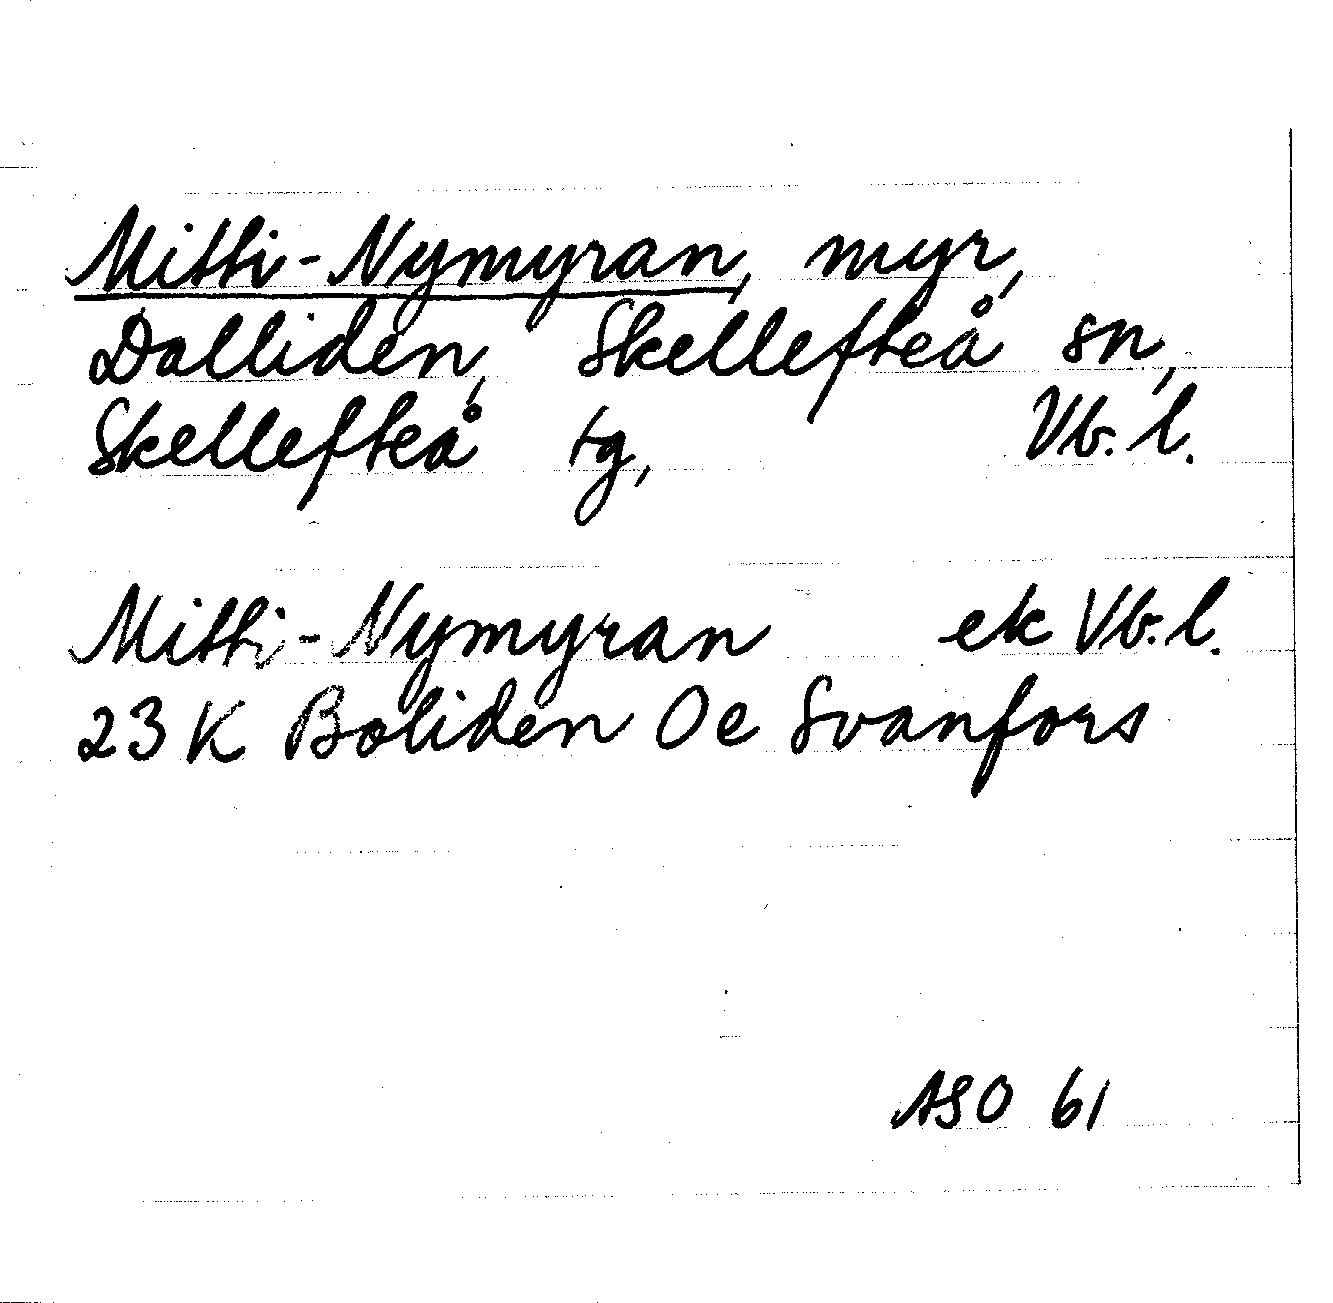 Mitti-Nymyran, myr,
Dalliden, Skellefteå sn,
Skellefteå tg, Vb. l.
Mitti-Nymyran ek Vb. l.
23 K Boliden Oe Svanfors
ASO 61